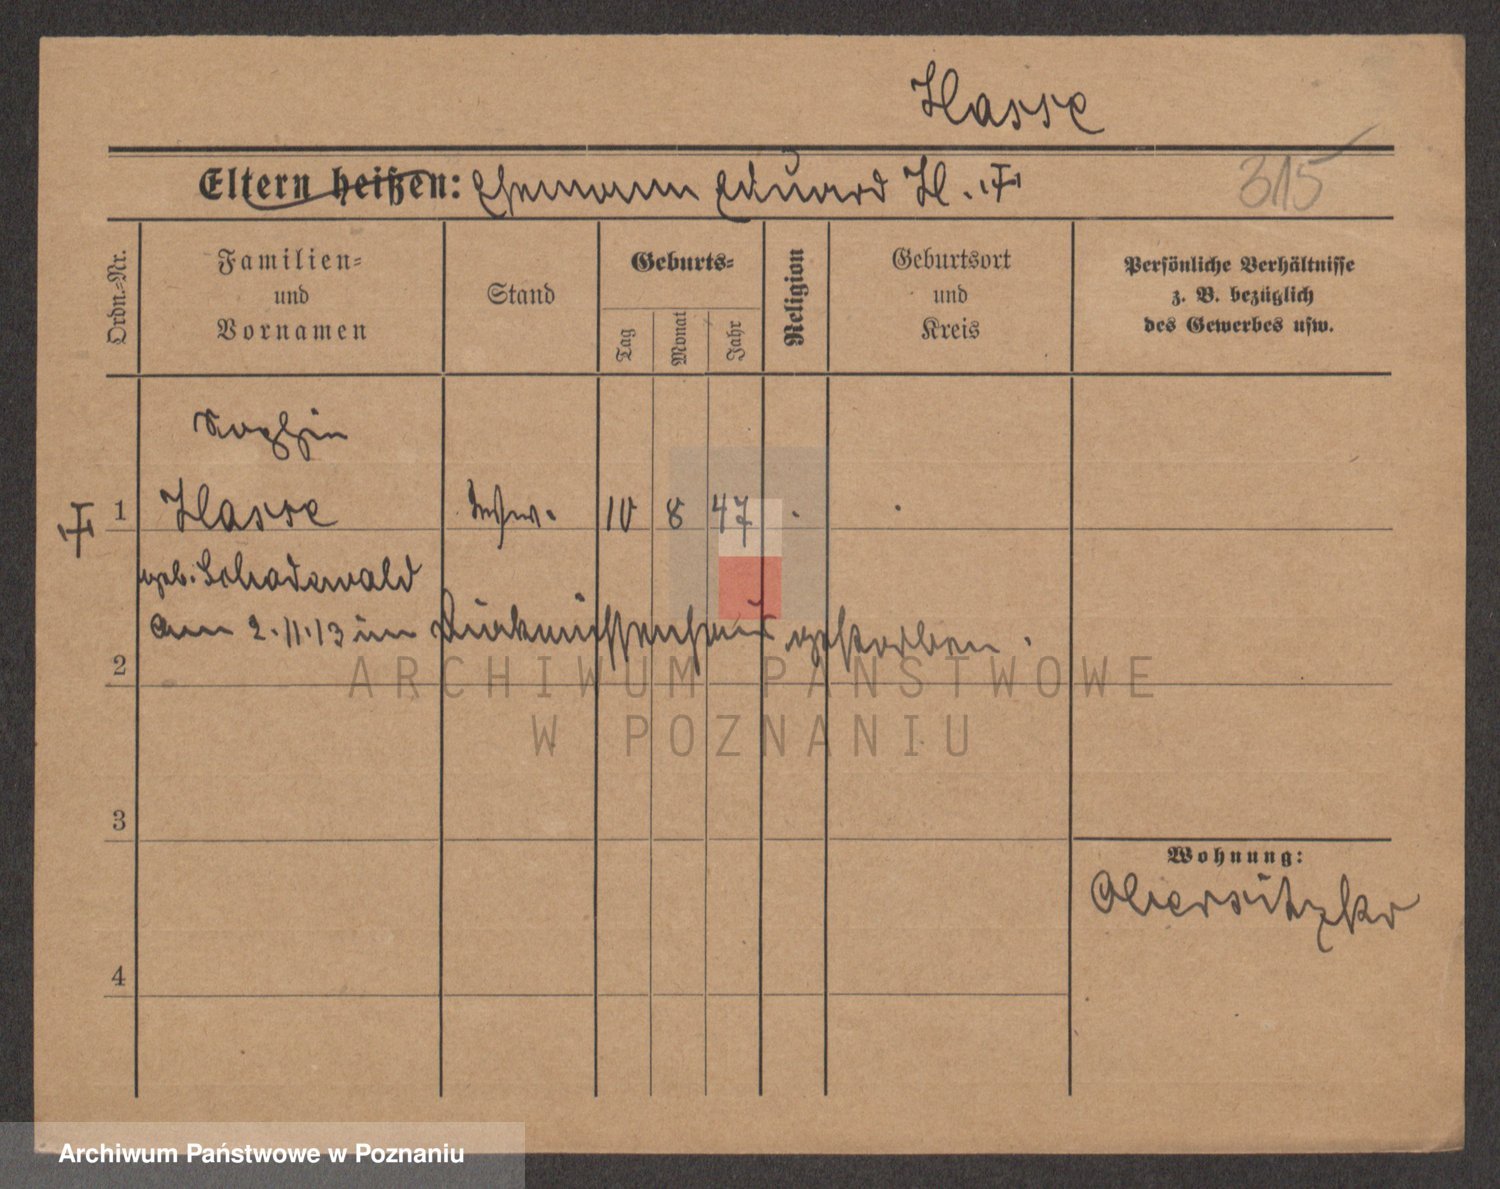 Hasse
Eltern heißen: Ehemann Eduard H. †
315
Ordn.=Nr.
Familien=
und
Vornamen
Stand
Geburts=
Tag
Monat
Jahr
Religion
Geburtsort
und
Kreis
Persönliche Verhältnisse
z. B. bezüglich
des Gewerbes usw.
Sophie
† 1 Hasse Wwe. 10 8 47
geb. Schadewald
am 2.11.13 im Diakonissenhaus gestorben.
2
3
4
Wohnung:
Obersitzko
ARCHIWUM PAŃSTWOWE
W POZNANIU
Archiwum Państwowe w Poznaniu